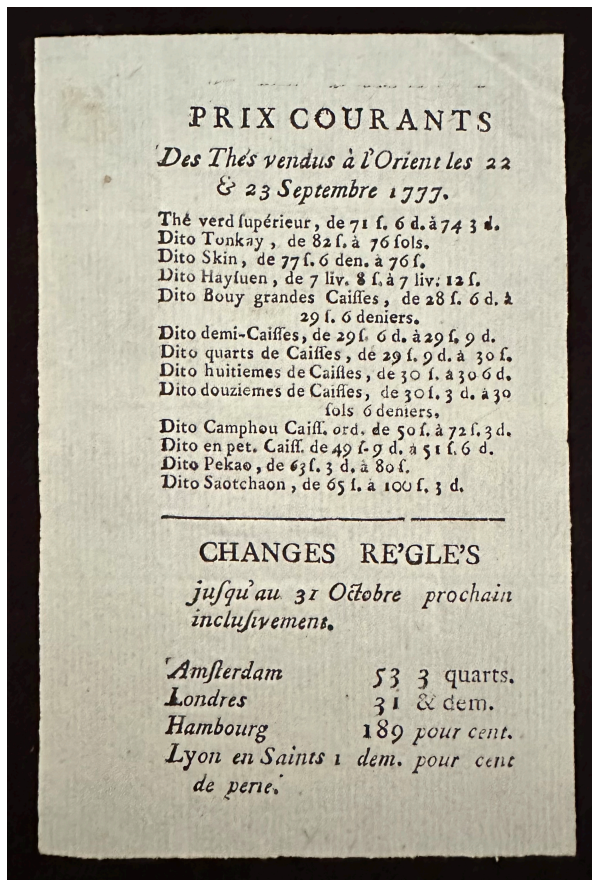 PRIX COURANTS
Des Thés vendus à l'Orient les 22
& 23 Septembre 1777.
Thé verd ſupérieur, de 71 ſ. 6 d. à 74 3 d.
Dito Tonkay, de 82 ſ. à 76 ſols.
Dito Skin, de 77 ſ. 6 den. à 76 ſ.
Dito Hayſuen, de 7 liv. 8 ſ. à 7 liv. 12 ſ.
Dito Bouy grandes Caiſſes, de 28 ſ. 6 d. à
29 ſ. 6 deniers.
Dito demi-Caiſſes, de 29 ſ. 6 d. à 29 ſ. 9 d.
Dito quarts de Caiſſes, de 29 ſ. 9 d. à 30 ſ.
Dito huitiemes de Caiſſes, de 30 ſ. à 30 6 d.
Dito douziemes de Caiſſes, de 30 ſ. 3 d. à 30
ſols 6 deniers,
Dito Camphou Caiſſ. ord. de 50 ſ. à 72 ſ. 3 d.
Dito en pet. Caiſſ. de 49 ſ. 9 d. à 51 ſ. 6 d.
Dito Pekao, de 63 ſ. 3 d. à 80 ſ.
Dito Saotchaon, de 65 ſ. à 100 ſ. 3 d.
CHANGES RE'GLE'S
juſqu'au 31 Octobre prochain
incluſivement.
Amſterdam 53 3 quarts.
Londres 31 & dem.
Hambourg 189 pour cent.
Lyon en Saints 1 dem. pour cent
de perte.